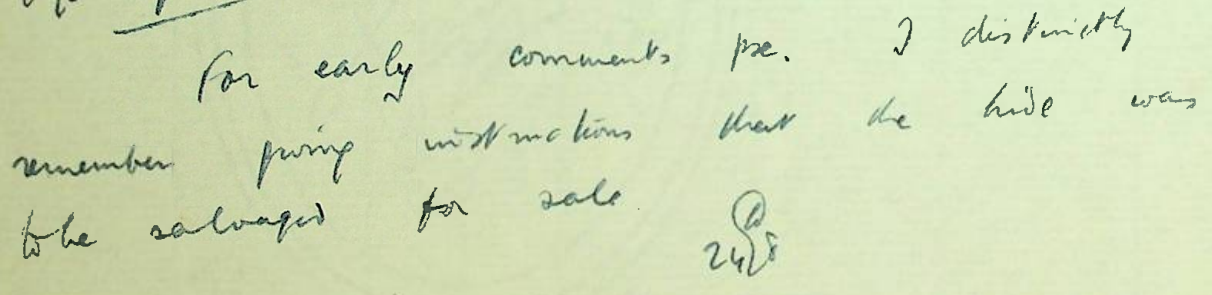 For early comments pse. I distinctly
remember giving instructions that the hide was
to be salvaged for sale
24/8